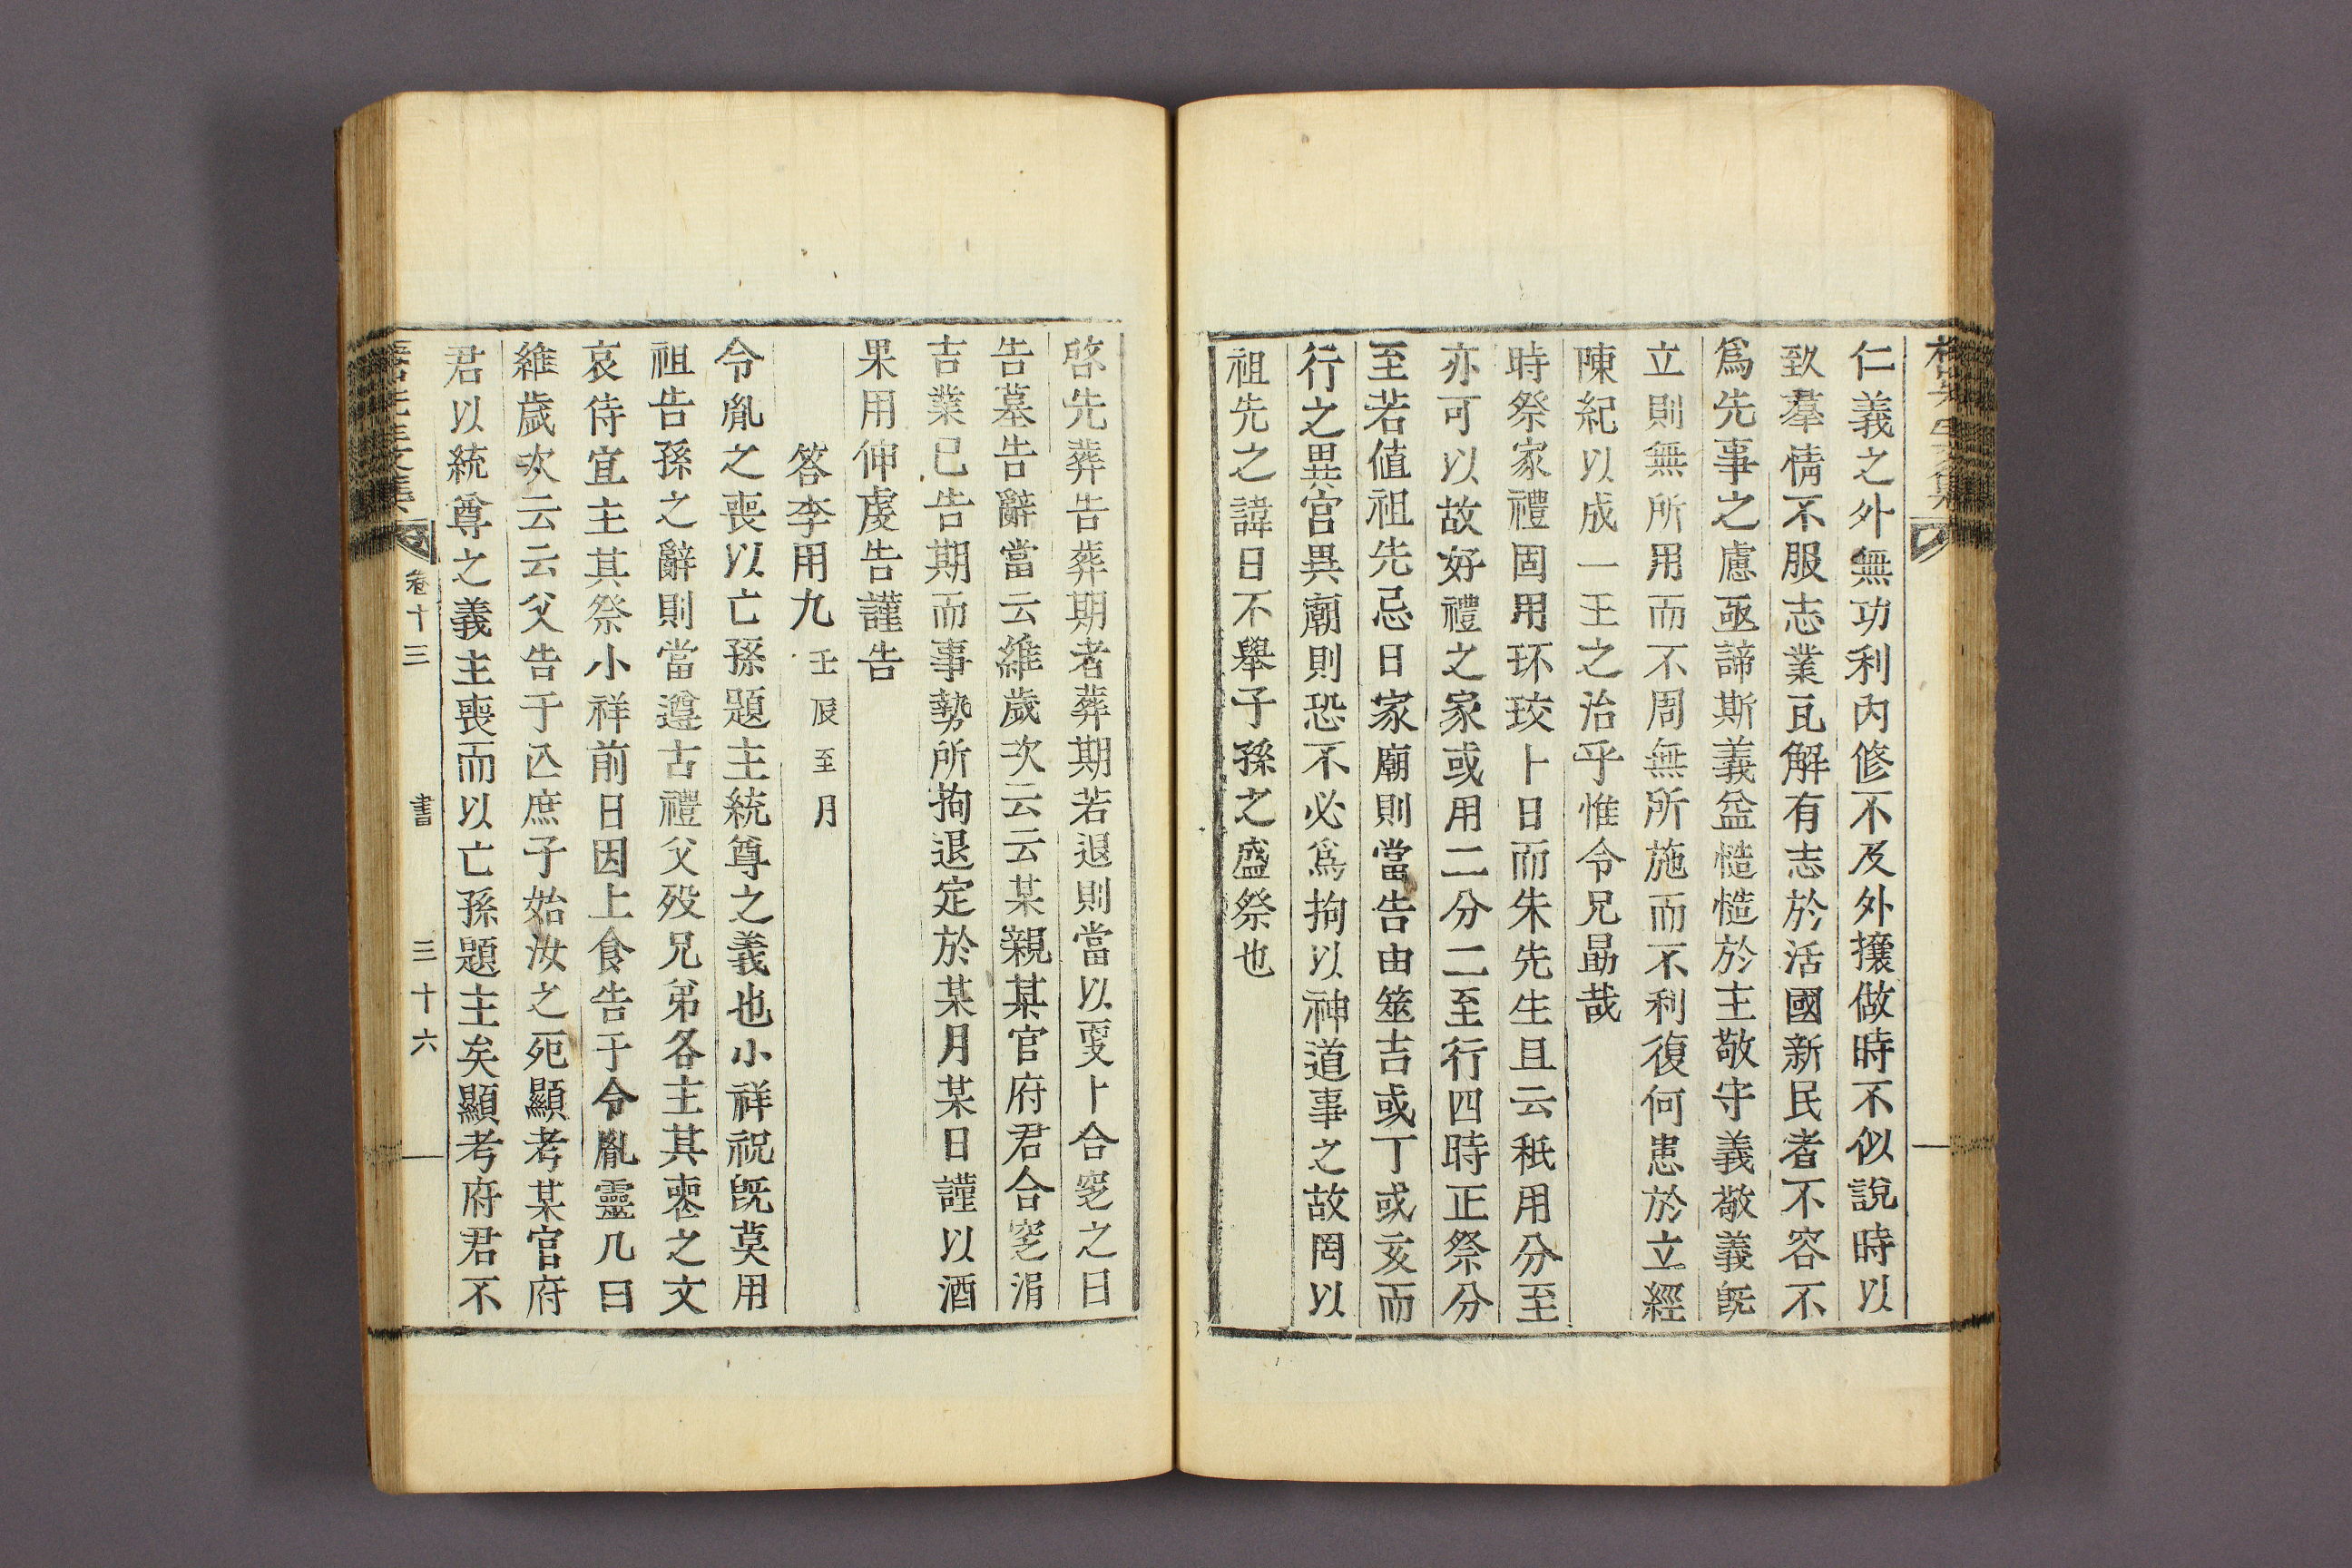 仁義之外無功利內修不及外攘做時不似說時以
致羣情不服志業瓦解有志於活國新民者不容不
爲先事之慮亟諦斯義益慥慥於主敬守義敬義旣
立則無所用而不周無所施而不利復何患於立經
陳紀以成一王之治乎惟令兄勗哉
時祭家禮固用环珓卜日而朱先生且云秪用分至
亦可以故好禮之家或用二分二至行四時正祭分
至若値祖先忌日家廟則當告由筮吉或丁或亥而
行之異宮異廟則恐不必爲拘以神道事之故罔以
祖先之諱日不舉子孫之盛祭也
啓先葬告葬期者葬期若退則當以更卜合窆之日
告墓告辭當云維歲次云云某親某官府君合窆涓
吉業已告期而事勢所拘退定於某月某日謹以酒
果用伸虔告謹告
答李用九 壬辰至月
令胤之喪以亡孫題主統尊之義也小祥祝旣莫用
祖告孫之辭則當遵古禮父歿兄弟各主其喪之文
哀侍宜主其祭小祥前日因上食告于令胤靈几曰
維歲次云云父告于亾庶子始汝之死顯考某官府
君以統尊之義主喪而以亡孫題主矣顯考府君不
卷十三 書 三十六